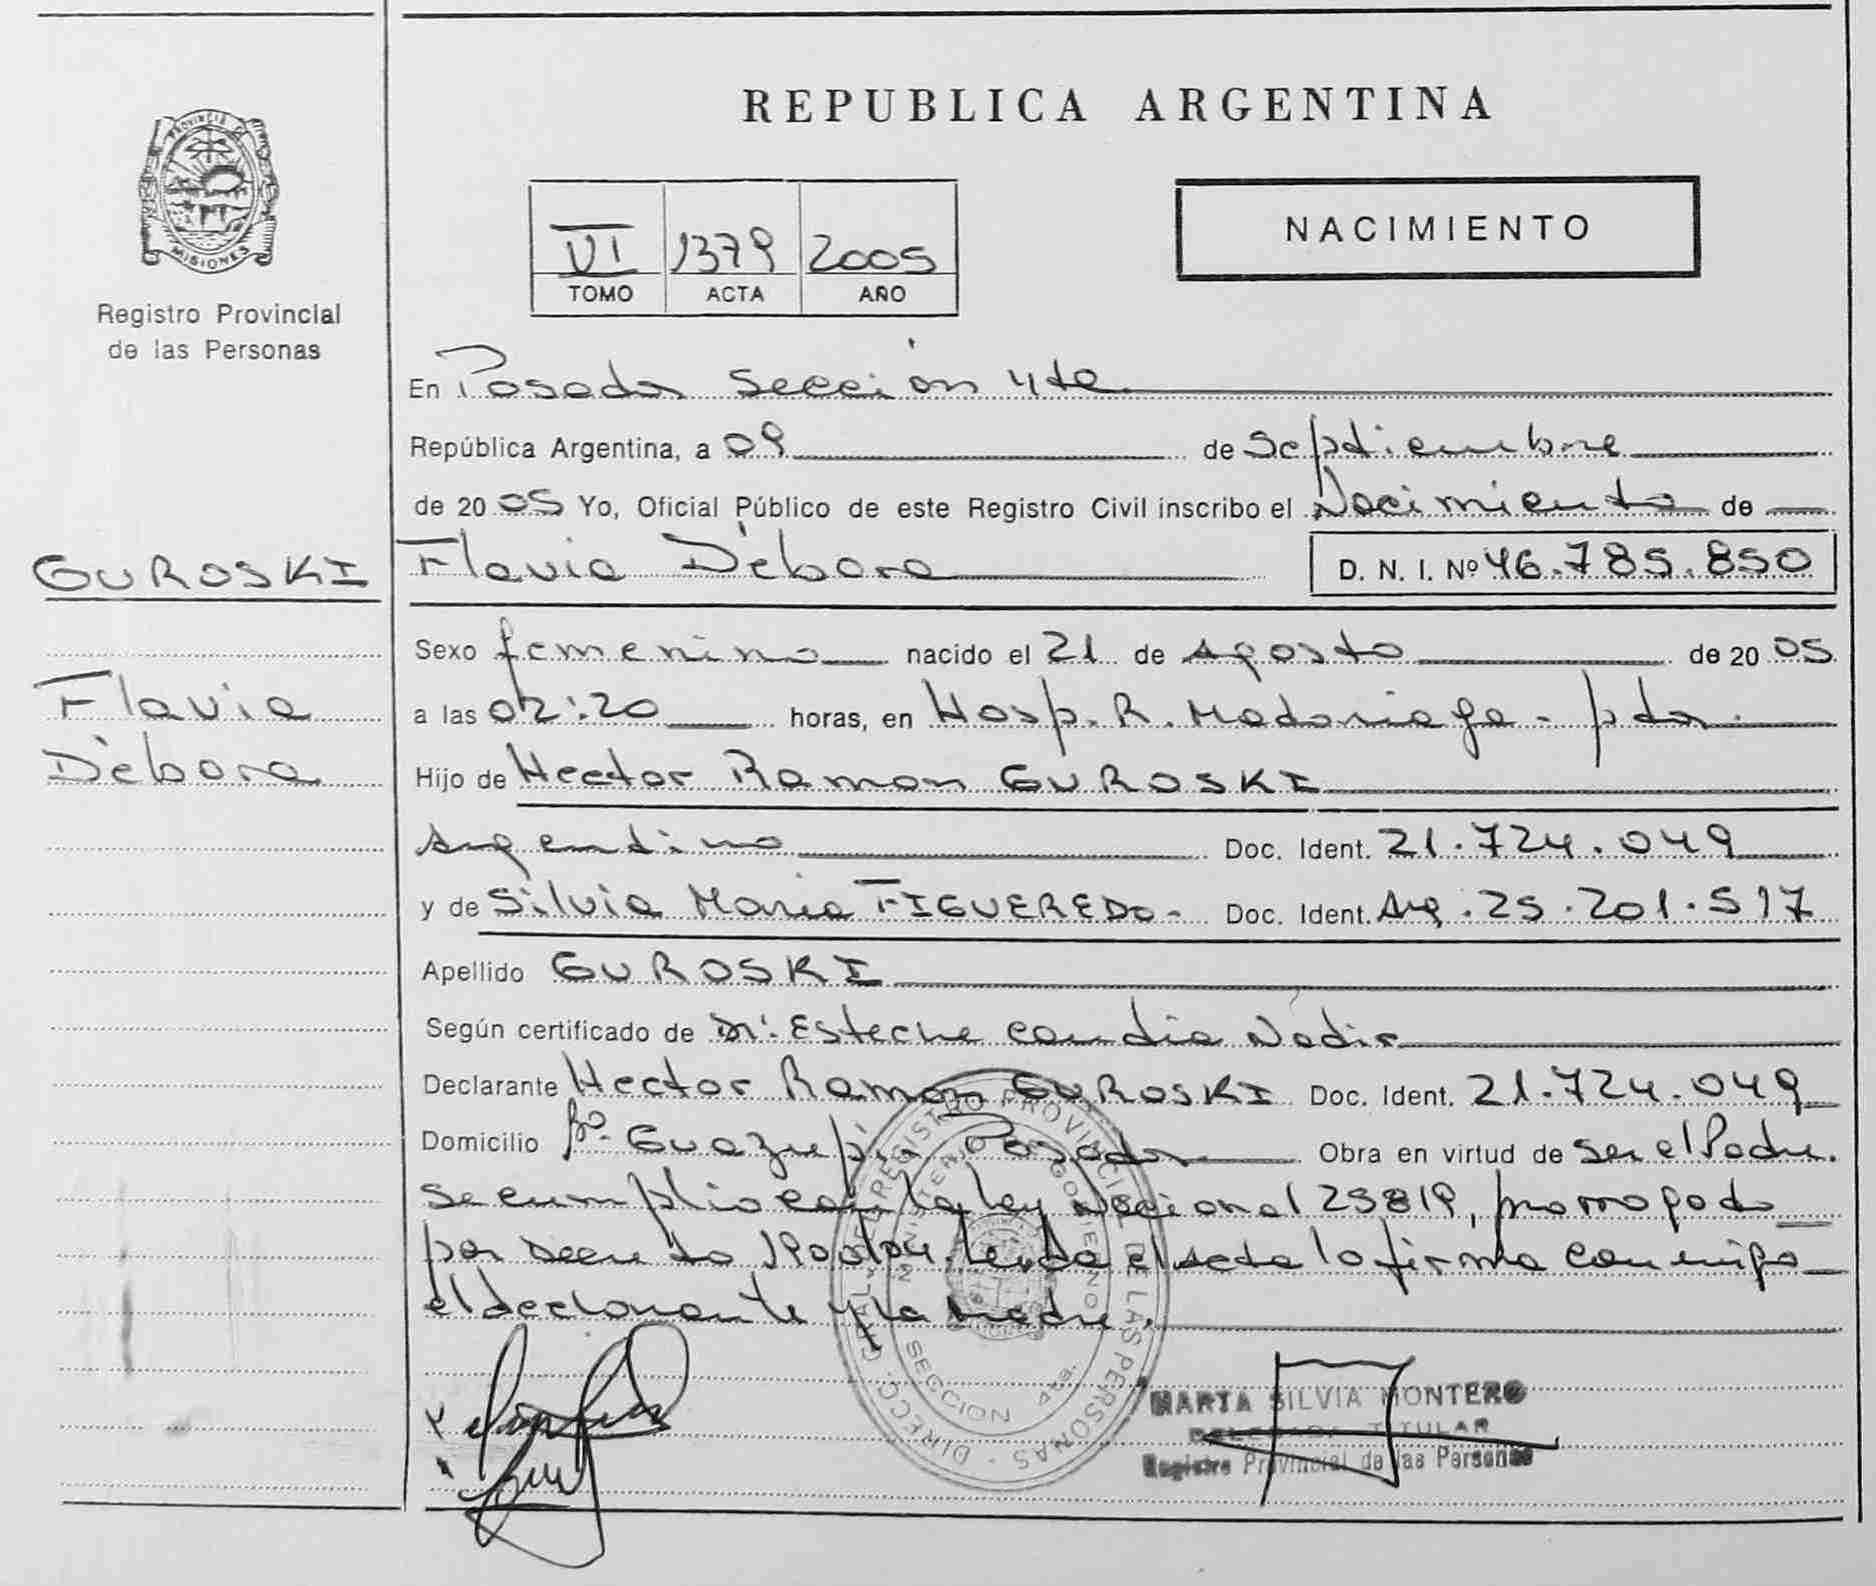 PROVINCIA DE
MISIONES
Registro Provincial
de las Personas
GUROSKI
Flavia
Débora
REPUBLICA ARGENTINA
VI 1379 2005
TOMO ACTA AÑO
NACIMIENTO
En Posadas Sección 4ta.
República Argentina, a 09 de Septiembre
de 2005 Yo, Oficial Público de este Registro Civil inscribo el Nacimiento de
Flavia Débora D. N. I. Nº 46.785.850
Sexo femenino nacido el 21 de Agosto de 2005
a las 02:20 horas, en Hosp. R. Madariaga - pdas.
Hijo de Hector Ramon GUROSKI
Argentino Doc. Ident. 21.724.049
y de Silvia Maria FIGUEREDO- Doc. Ident. Arg. 25.201.517
Apellido GUROSKI
Según certificado de Dr. Esteche Nadir
Declarante Hector Ramon GUROSKI Doc. Ident. 21.724.049
Domicilio Bº. Guazupi Posadas Obra en virtud de ser el Padre.
se cumplio con la ley Nacional 25819, prorrogado
por Decreto Leida el acta lo firma conmigo
el declarante y la madre.
DIRECC. GRAL. DE REGISTRO PROVINCIAL DE LAS PERSONAS
MINISTERIO GOBIERNO
SECCION 4ta.
MARTA SILVIA MONTERO
DELEGADA TITULAR
Registro Provincial de las Personas